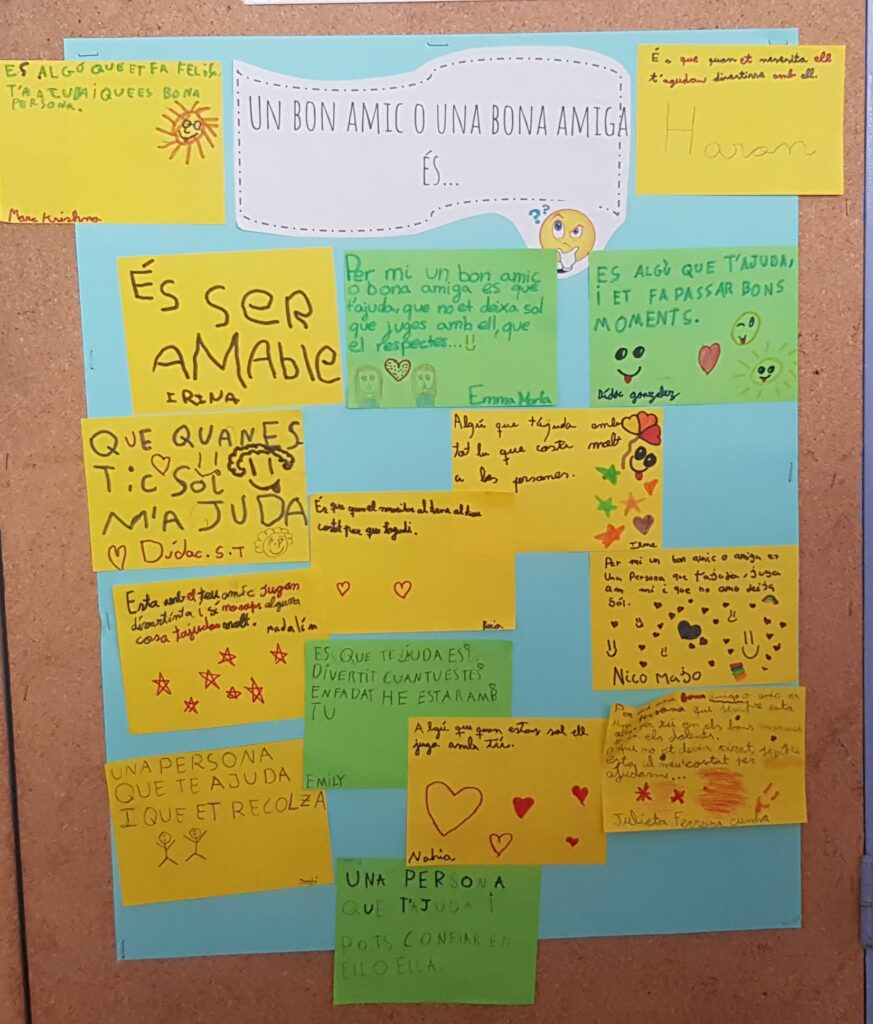 UN BON AMIC O UNA BONA AMIGA
ÉS...
ES ALGÚ QUE ET FA FELIS,
T'A AJUDA I QUE ES BONA
PERSONA.
Marc Krishna
É s que quan et nesesita ell
t'aguda divertirse amb ell.
Haron
ÉS SER
AMABLE
IRINA
Per mi un bon amic
o bona amiga es que
t'ajuda, que no et deixa sol
que juges amb ell, que
el respectes...
Emma Marla
ES ALGÚ QUE T'AJUDA,
I ET FA PASSAR BONS
MOMENTS.
Dídac gonzalez
QUE QUAN ES
TIC SOL
M'A JUDA
Dídac.S.T
Algú que t'ajuda amb
tot lu que costa molt
a les persones.
És que quan
costat per que t'agudi.
Esta amb el teu amic jugan
divertinta i si no saps alguna
cosa t'ajudas molt.
Madalin
Per mi un bon amic o amiga es
una Persona que t'ajuda, juga
am mi i que no amo deixa
sol.
NICO MAJO
ES QUE TE AJUDA ES
DIVERTIT CUANTU ESTES
ENFADAT HE ESTAR AMB
TU
EMILY
bona amiga o amic es
persona que sempre esta
per tu en els bons moments
en els dolents.
que no et deixa
estar al meu costat per
ajudarme...
Julieta Ferreira cunha
Algú que quan estas sol ell
juga amb tú.
Nahia
UNA PERSONA
QUE TE AJUDA
I QUE ET RECOLZA
UNA PERSONA
QUE T'AJUDA I
POTS CONFIAR EN
ELL O ELLA.